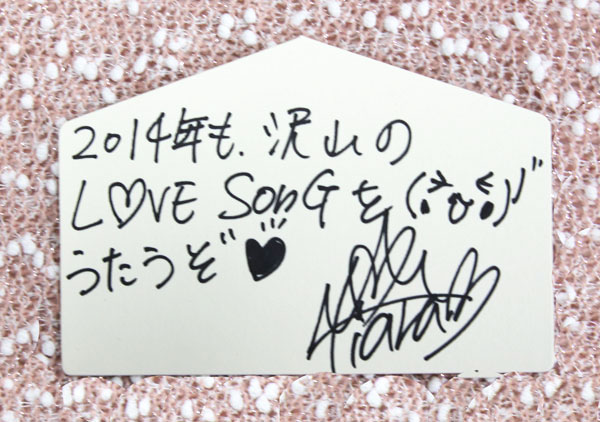 2014年も、沢山の
L♡VE SonGを
うたうぞ♥
Tiara